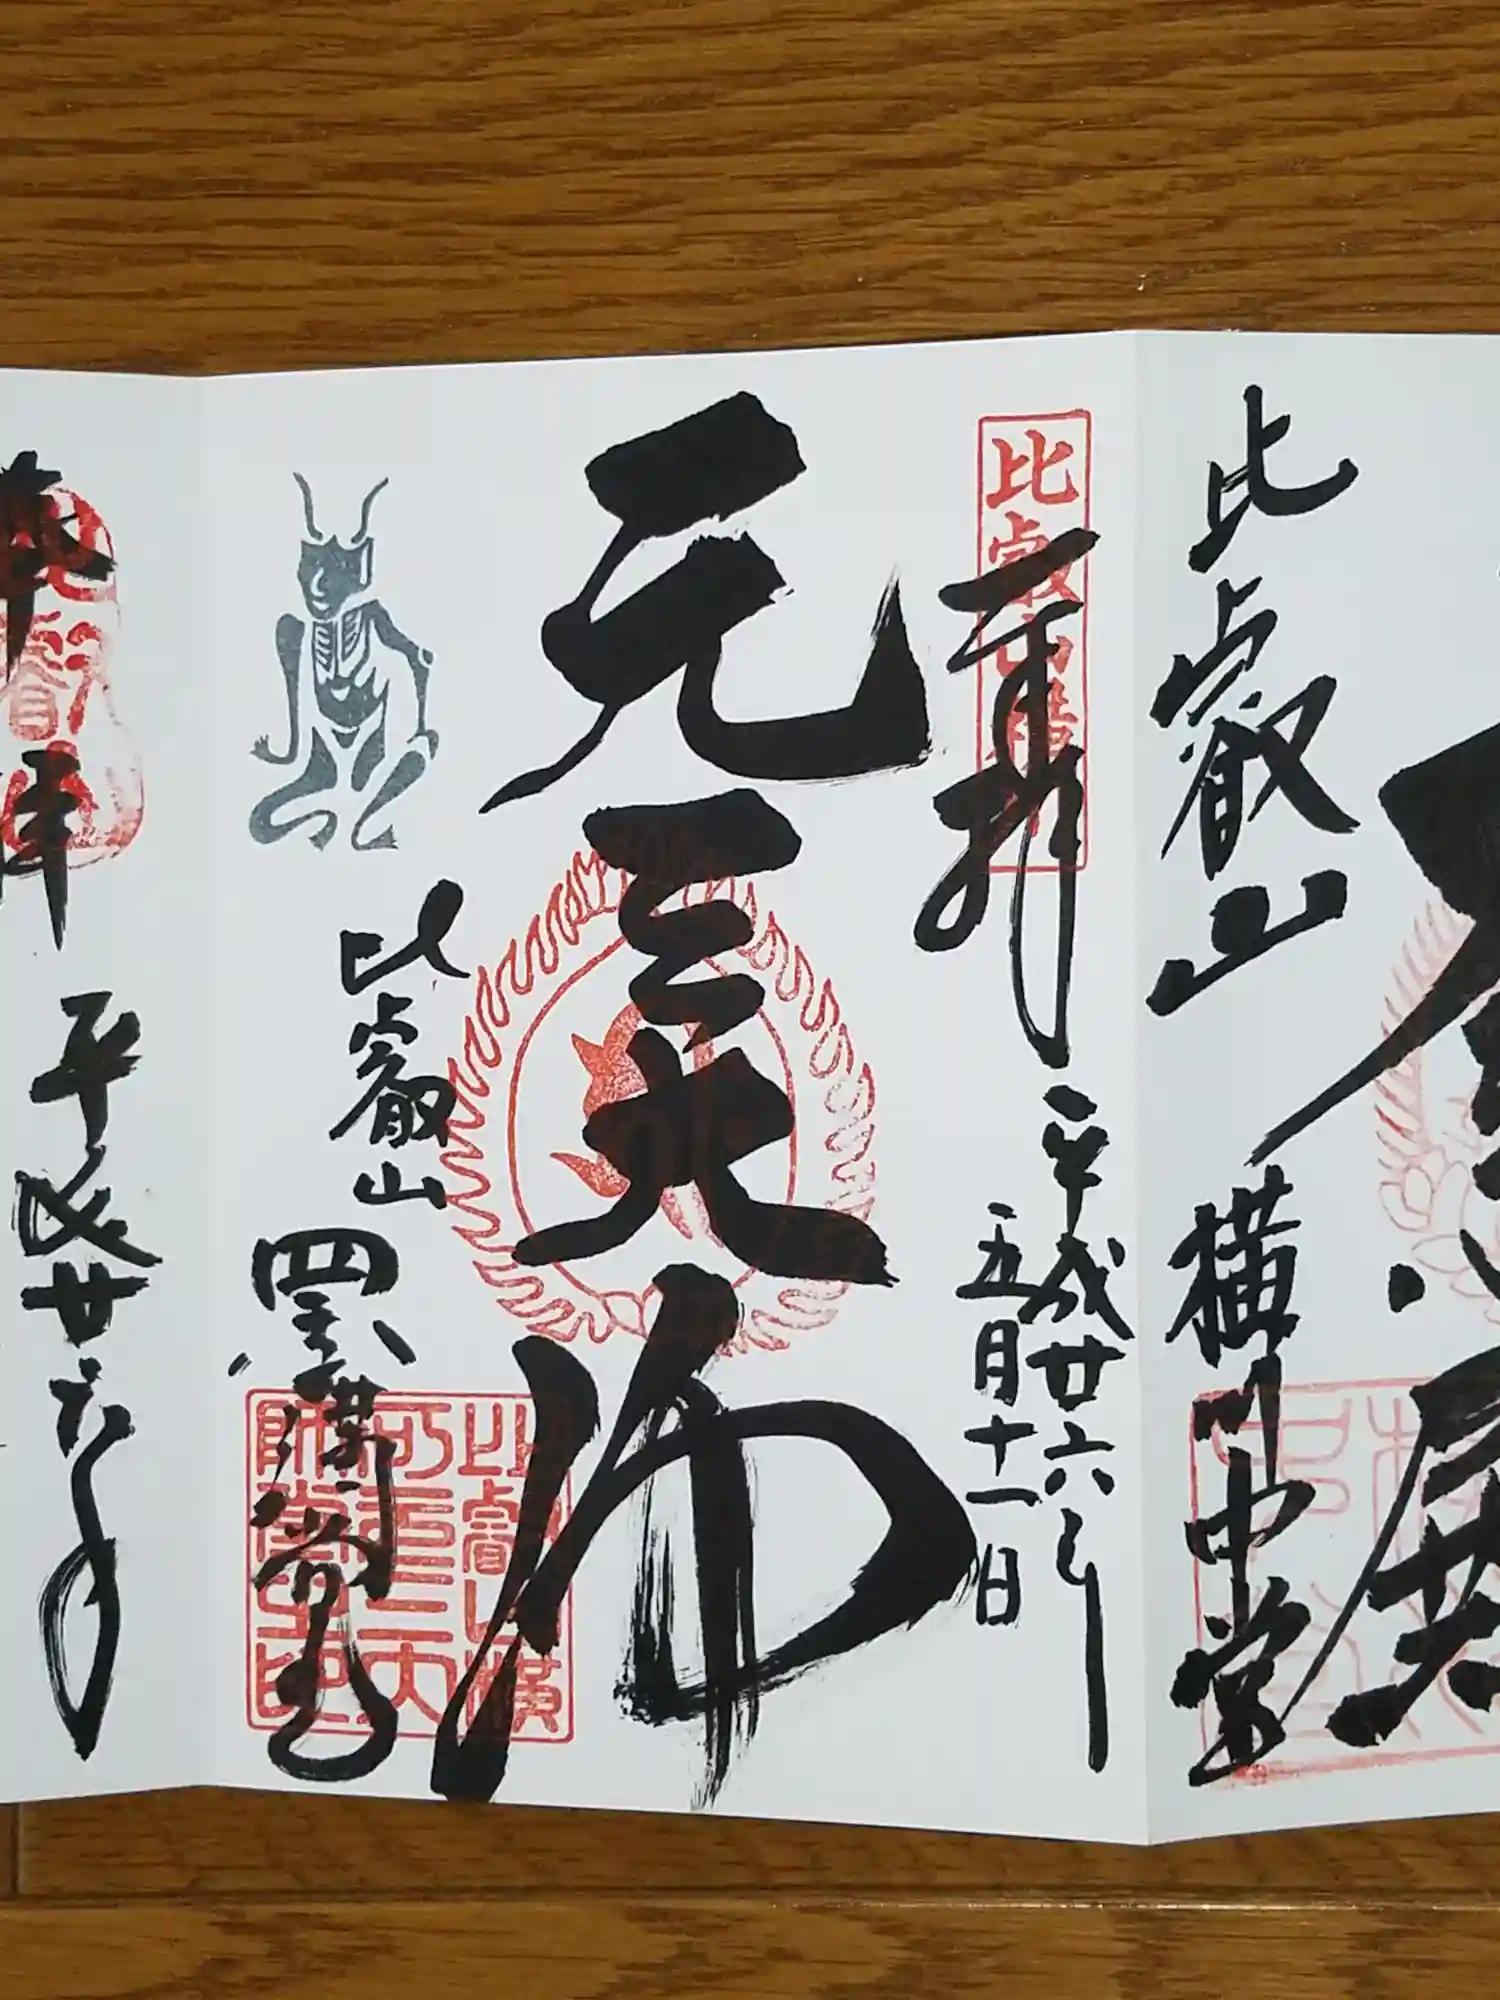 比叡山
横川中堂
奉拝
平成廿六年
五月十一日
元三大師
比叡山
四季講堂
比叡山横川
比叡山横
川元三大
師堂之印
奉拝
平成廿六年